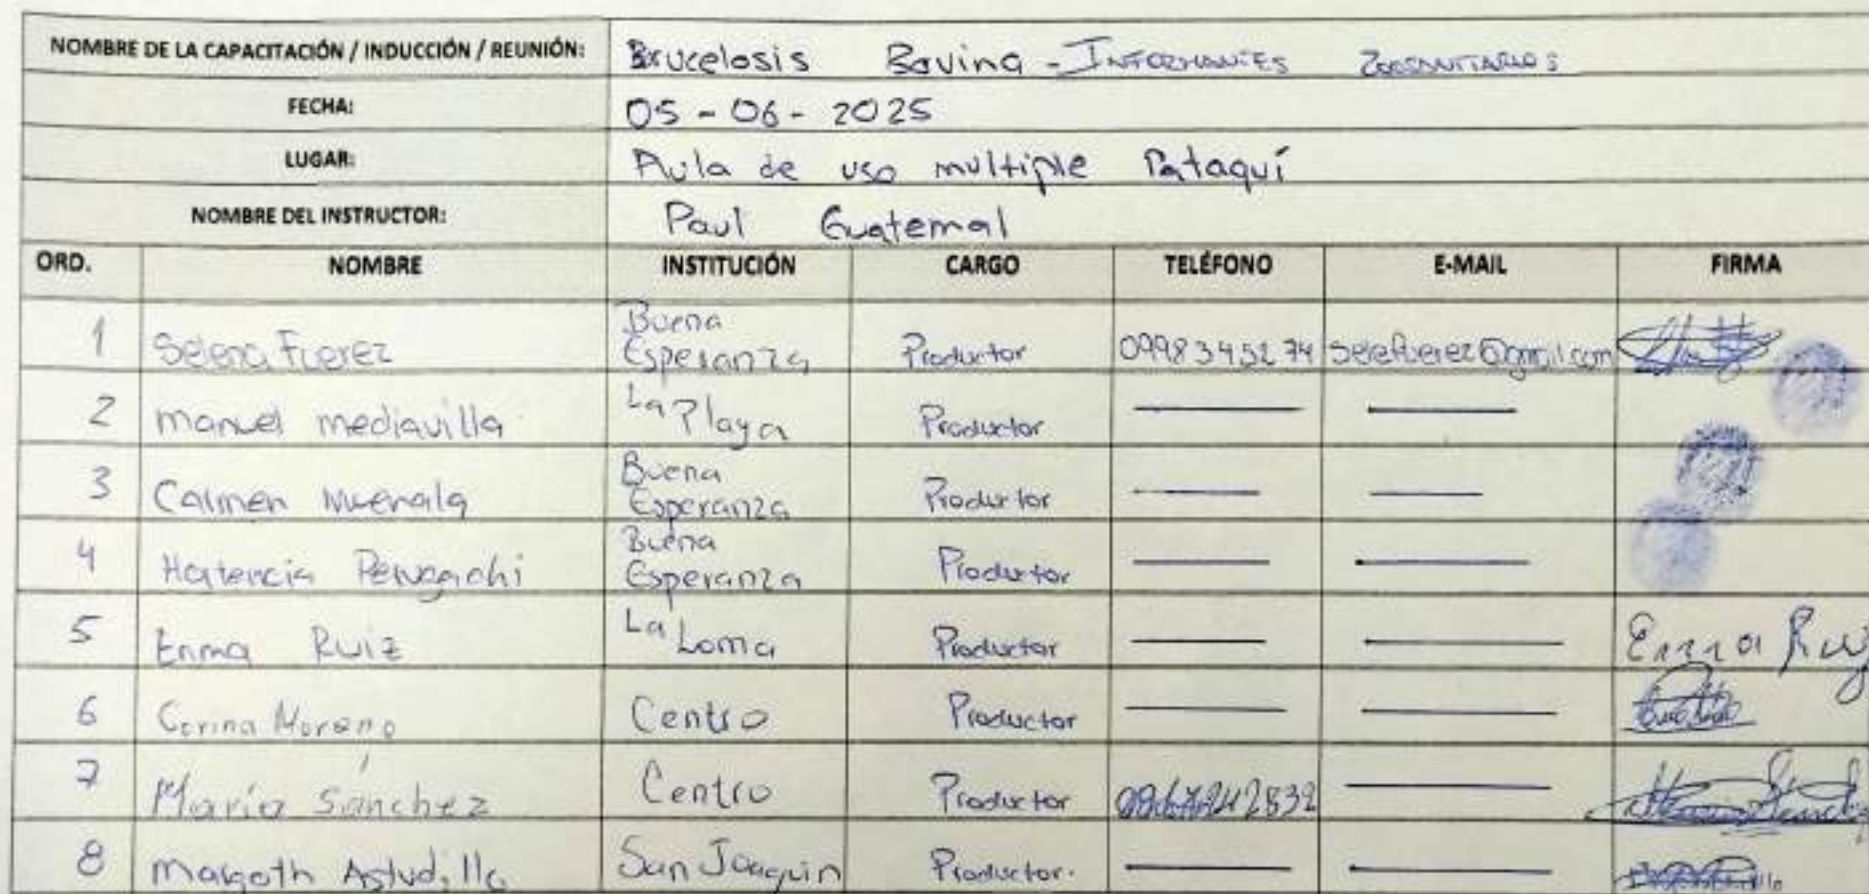 NOMBRE DE LA CAPACITACIÓN / INDUCCIÓN / REUNIÓN: Brucelosis Bovina - INFORMANTES ZOOSANITARIOS
FECHA: 05 - 06 - 2025
LUGAR: Aula de uso multiple Pataquí
NOMBRE DEL INSTRUCTOR: Paul Guatemal
ORD. NOMBRE INSTITUCIÓN CARGO TELÉFONO E-MAIL FIRMA
1 Selena Fuerez Buena Esperanza Productor 0998345274 selefuerez@gmail.com
2 Manuel mediavilla La Playa Productor
3 Carmen Muenala Buena Esperanza Productor
4 Hortencia Perugachi Buena Esperanza Productor
5 Enma Ruiz La Loma Productor Enma Ruiz
6 Corina Moreno Centro Productor
7 María Sánchez Centro Productor
8 Margoth Astudillo San Joaquin Productor.